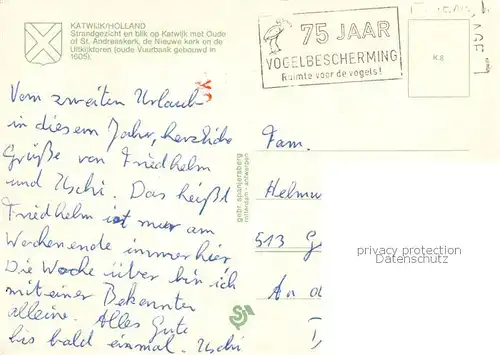 KATWIJK/HOLLAND
Strandgezicht en blik op Katwijk met Oude
of St. Andreaskerk, de Nieuwe kerk en de
Uitkijktoren (oude Vuurbaak gebouwd in
1605).
75 JAAR
VOGELBESCHERMING
Ruimte voor de vogels!
K 8
Vom zweiten Urlaub
in diesem Jahr, herzliche
Grüße von Friedhelm
und Uschi. Das heißt
Friedhelm ist nur am
Wochenende immer hier
Die Woche über bin ich
mit einer Bekannten
alleine. Alles Gute
bis bald einmal. Uschi
gebr. spanjersberg
rotterdam - antwerpen
Fam.
Helmu
513 G
An d
privacy protection
Datenschutz